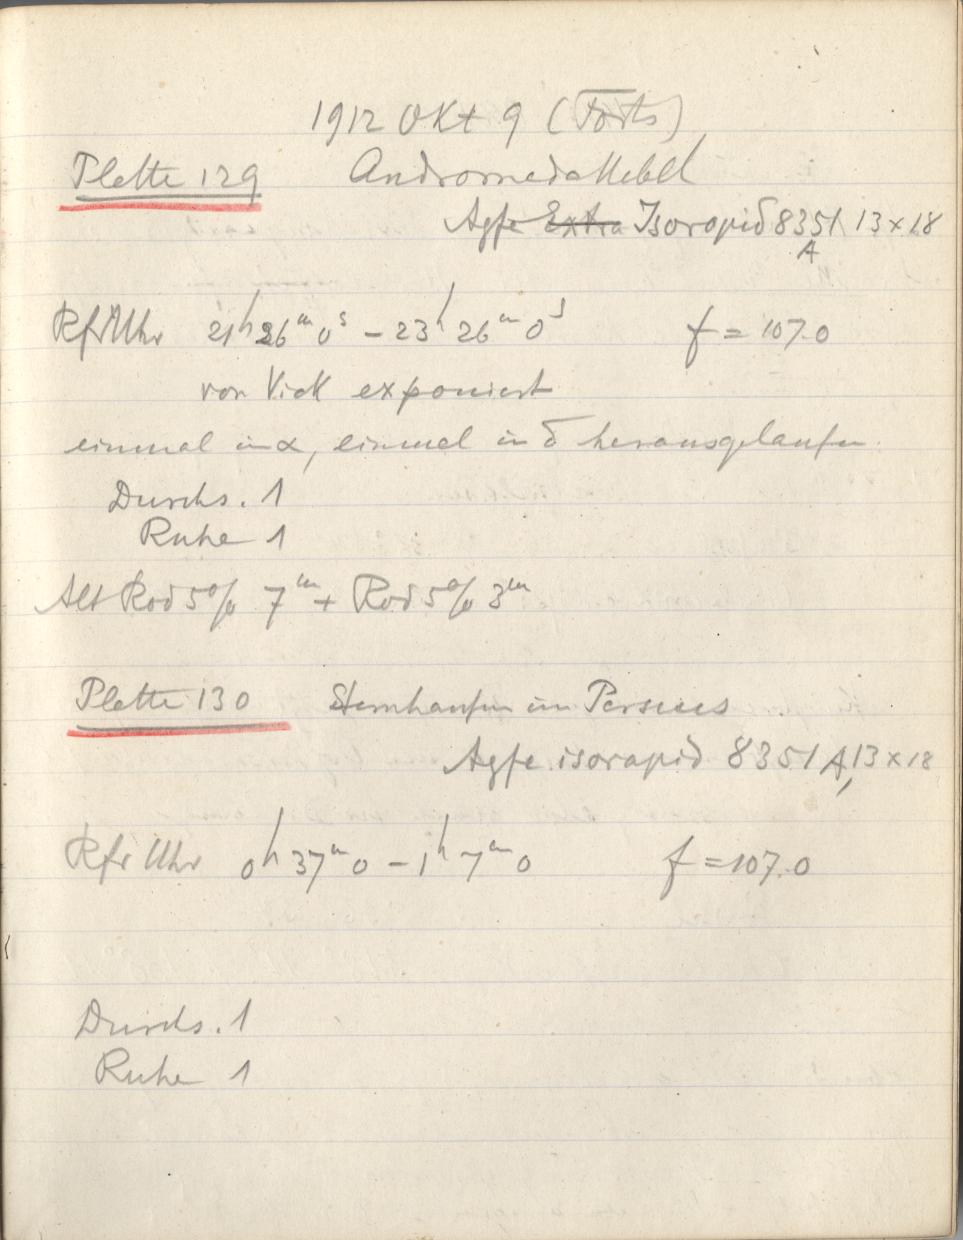 1912 Okt 9 (Forts)
Platte 129 Andromeda Nebel
Agfa Extra Isorapid 8351 13 x 18
A
Rfr Uhr 21h 26m 0s – 23h 26m 0s f = 107.0
von Vick exponiert
einmal in α, einmal in δ herausgelaufen.
Durchs. 1
Ruhe 1
Alt Rod 5% 7m + Rod 5% 3m
Platte 130 Sternhaufen im Perseus
Agfa isorapid 8351 A, 13 x 18
Rfr Uhr 0h 37m 0 – 1h 7m 0 f = 107.0
Durchs. 1
Ruhe 1